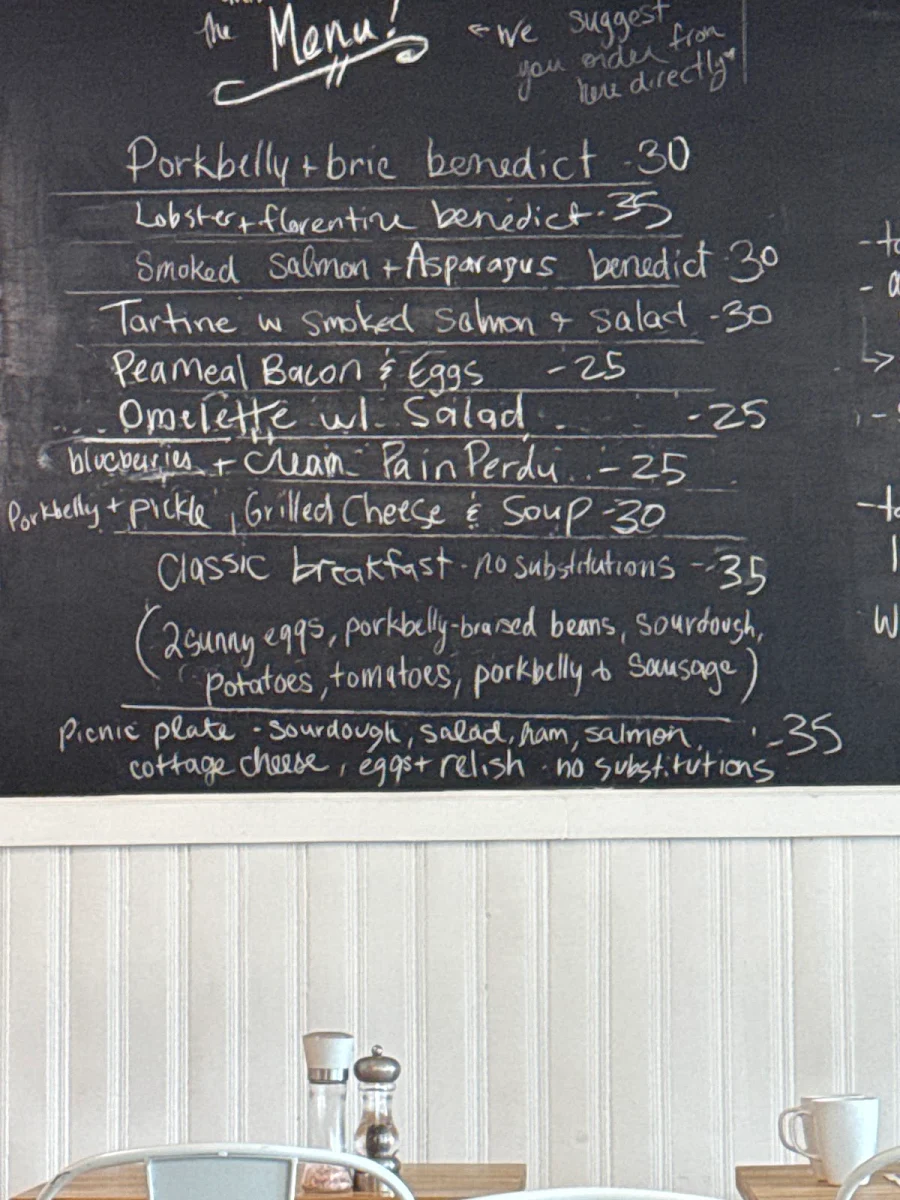 the Menu!
← We suggest
you order from
here directly*
Porkbelly + brie benedict -30
Lobster + florentine benedict - 35
Smoked Salmon + Asparagus benedict -30
Tartine w smoked salmon & salad -30
Peameal Bacon & Eggs -25
Omelette w/ Salad -25
blueberries + cream Pain Perdu -25
Porkbelly + pickle, Grilled Cheese & Soup -30
Classic breakfast - no substitutions - 35
(2 sunny eggs, porkbelly-braised beans, sourdough,
potatoes, tomatoes, porkbelly & Sausage)
Picnic plate - sourdough, salad, ham, salmon, -35
cottage cheese, eggs + relish - no substitutions